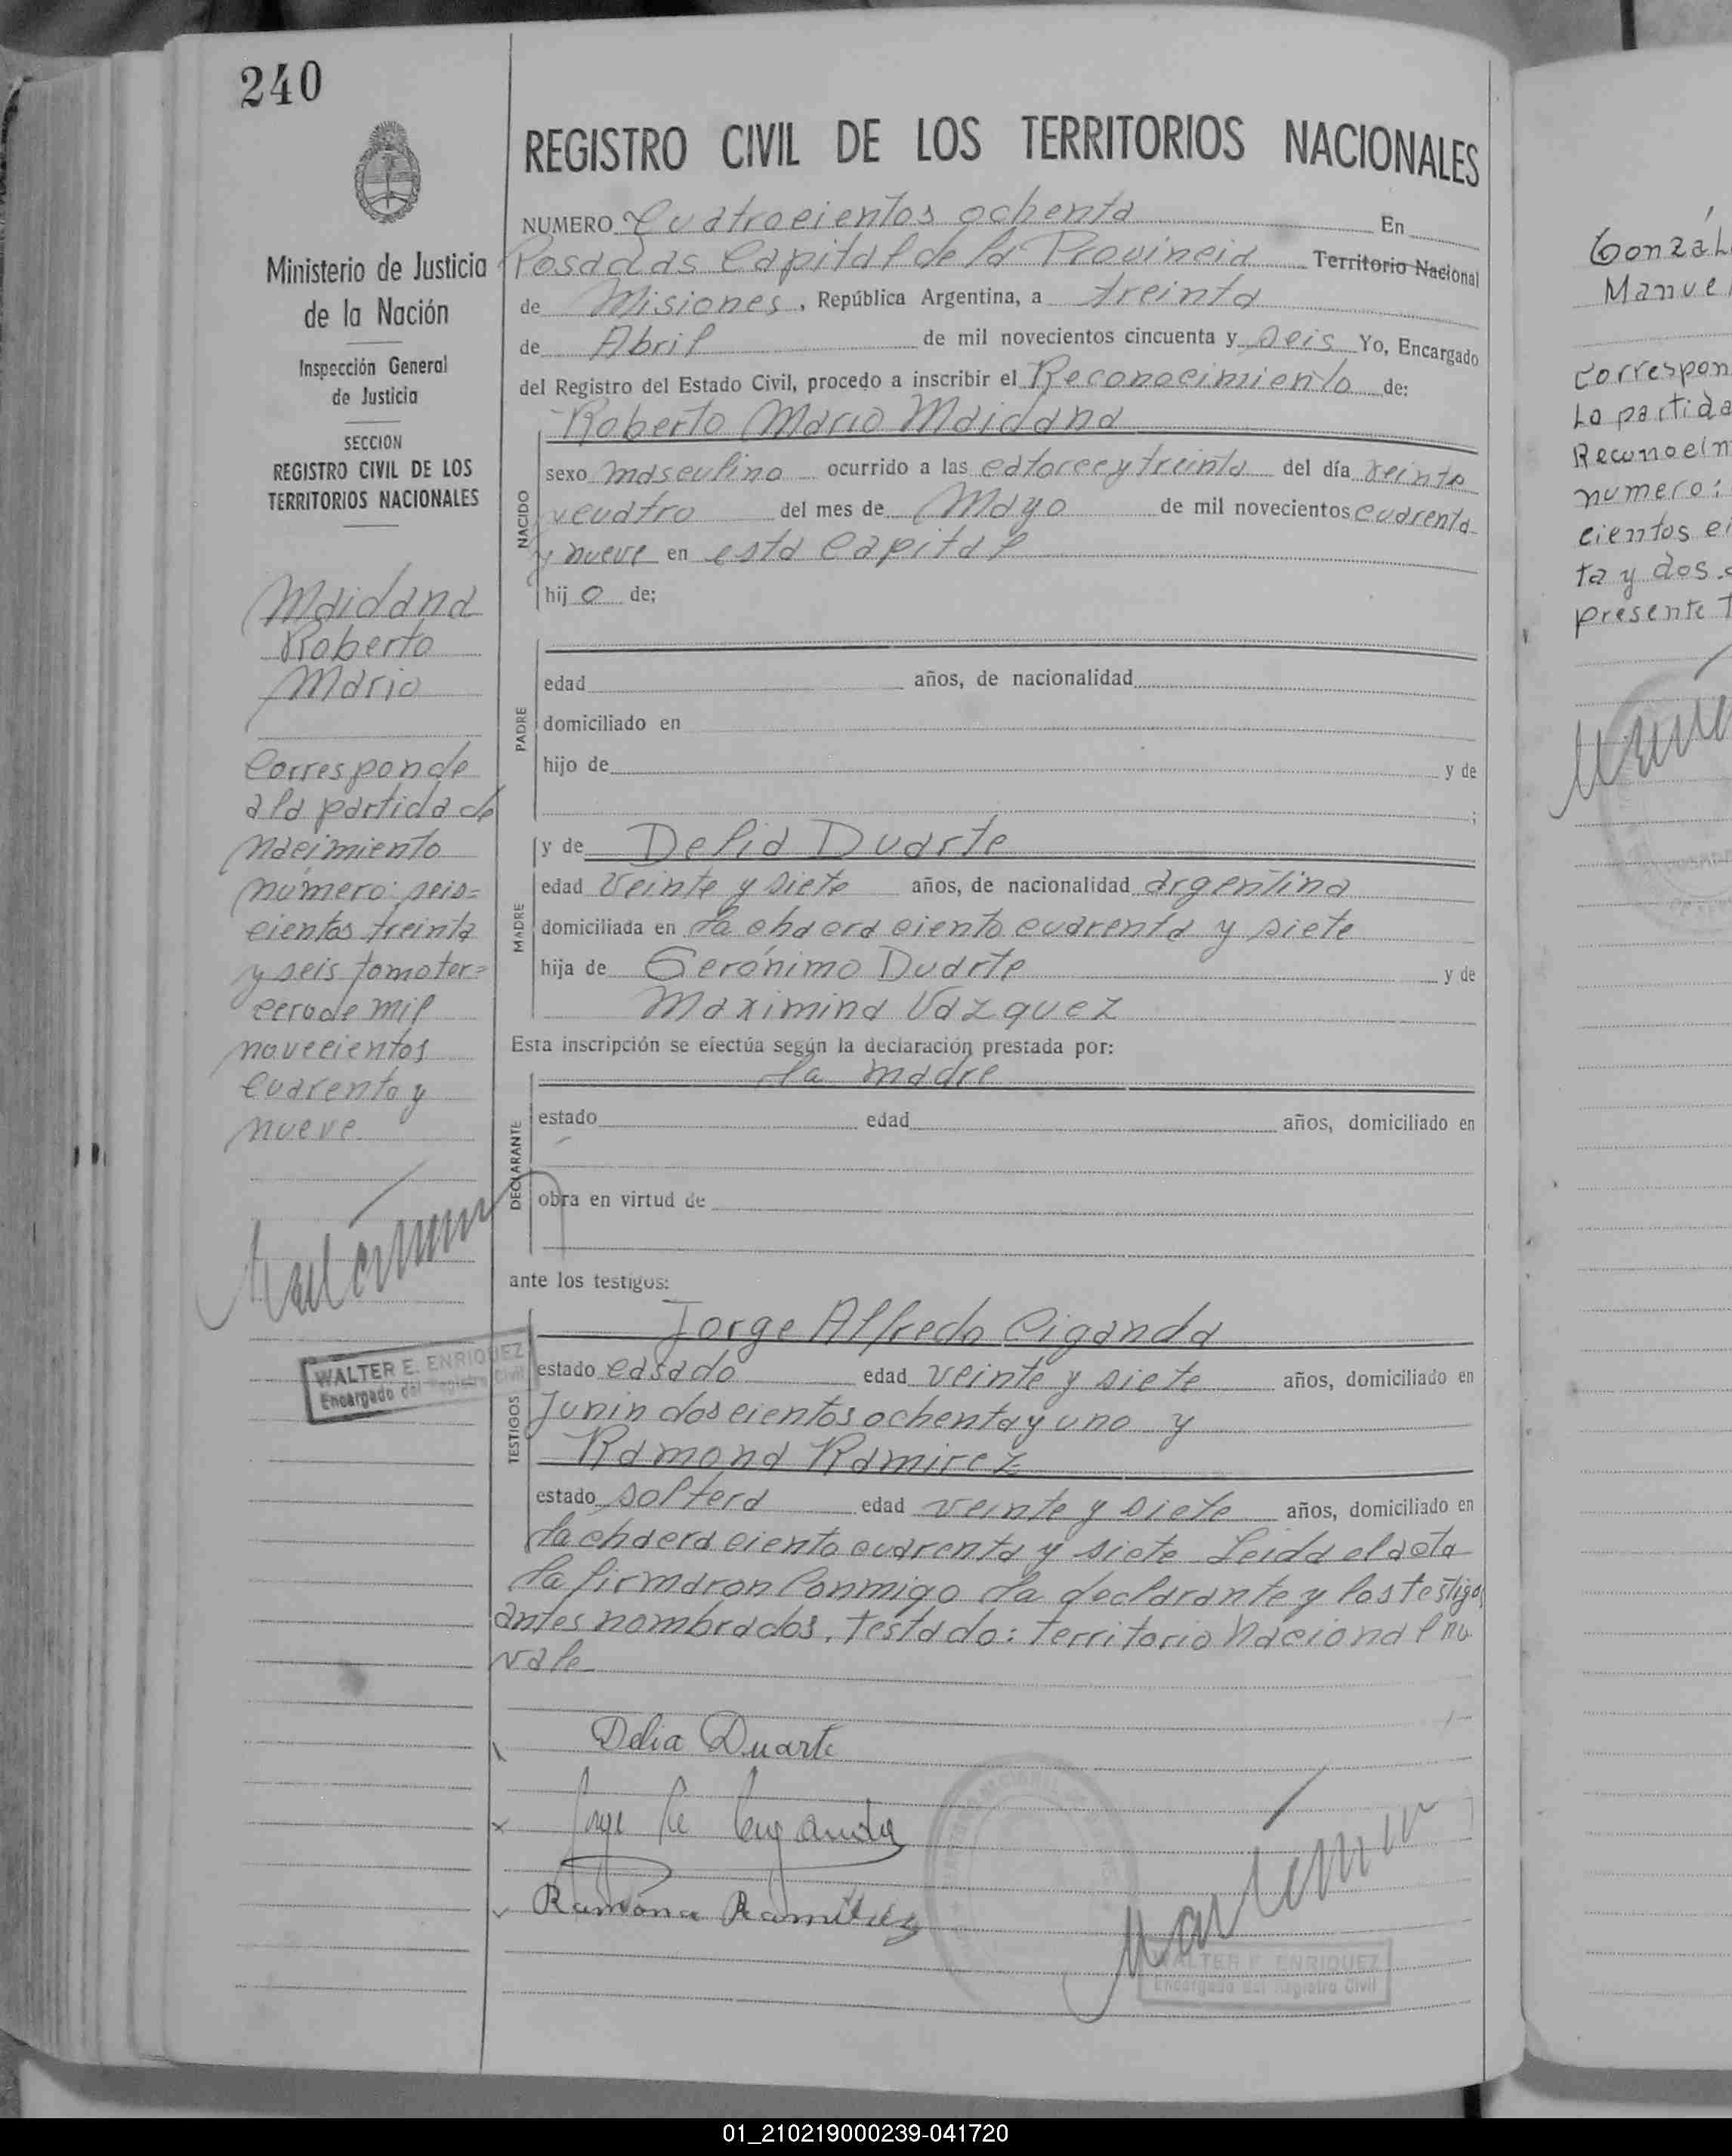 240
Ministerio de Justicia
de la Nación
Inspección General
de Justicia
SECCION
REGISTRO CIVIL DE LOS
TERRITORIOS NACIONALES
Maidana
Roberto
Mario
Corresponde
a la partida de
nacimiento
número: seis=
cientos treinta
y seis tomo ter=
cero de mil
novecientos
cuarenta y
nueve
WALTER E. ENRIQUEZ
Encargado del Registro Civil
REGISTRO CIVIL DE LOS TERRITORIOS NACIONALES
NUMERO Cuatrocientos ochenta En
Posadas Capital de la Provincia Territorio Nacional
de Misiones, República Argentina, a treinta
de Abril de mil novecientos cincuenta y seis Yo, Encargado
del Registro del Estado Civil, procedo a inscribir el Reconocimiento de:
Roberto Mario Maidana
NACIDO
sexo masculino ocurrido a las catorce y treinta del día veinte
y cuatro del mes de Mayo de mil novecientos cuarenta
y nueve en esta Capital
hijo de;
PADRE
edad años, de nacionalidad
domiciliado en
hijo de y de
;
MADRE
y de Delia Duarte
edad veinte y siete años, de nacionalidad argentina
domiciliada en la chacra ciento cuarenta y siete
hija de Gerónimo Duarte y de
Maximina Vazquez
Esta inscripción se efectúa según la declaración prestada por:
la madre
DECLARANTE
estado edad años, domiciliado en
obra en virtud de
ante los testigos:
TESTIGOS
Jorge Alfredo Ciganda
estado casado edad veinte y siete años, domiciliado en
Junin doscientos ochenta y uno y
Ramona Ramirez
estado soltera edad veinte y siete años, domiciliado en
la chacra ciento cuarenta y siete Leida el acta
la firmaron conmigo la declarante y los testigos
antes nombrados. Testado: Territorio Nacional no
vale
Delia Duarte
Ramona Ramirez
WALTER E. ENRIQUEZ
Encargado del Registro Civil
Manuel
correspon
La partida
numero:
cientos
ta y dos
presente
01_210219000239-041720